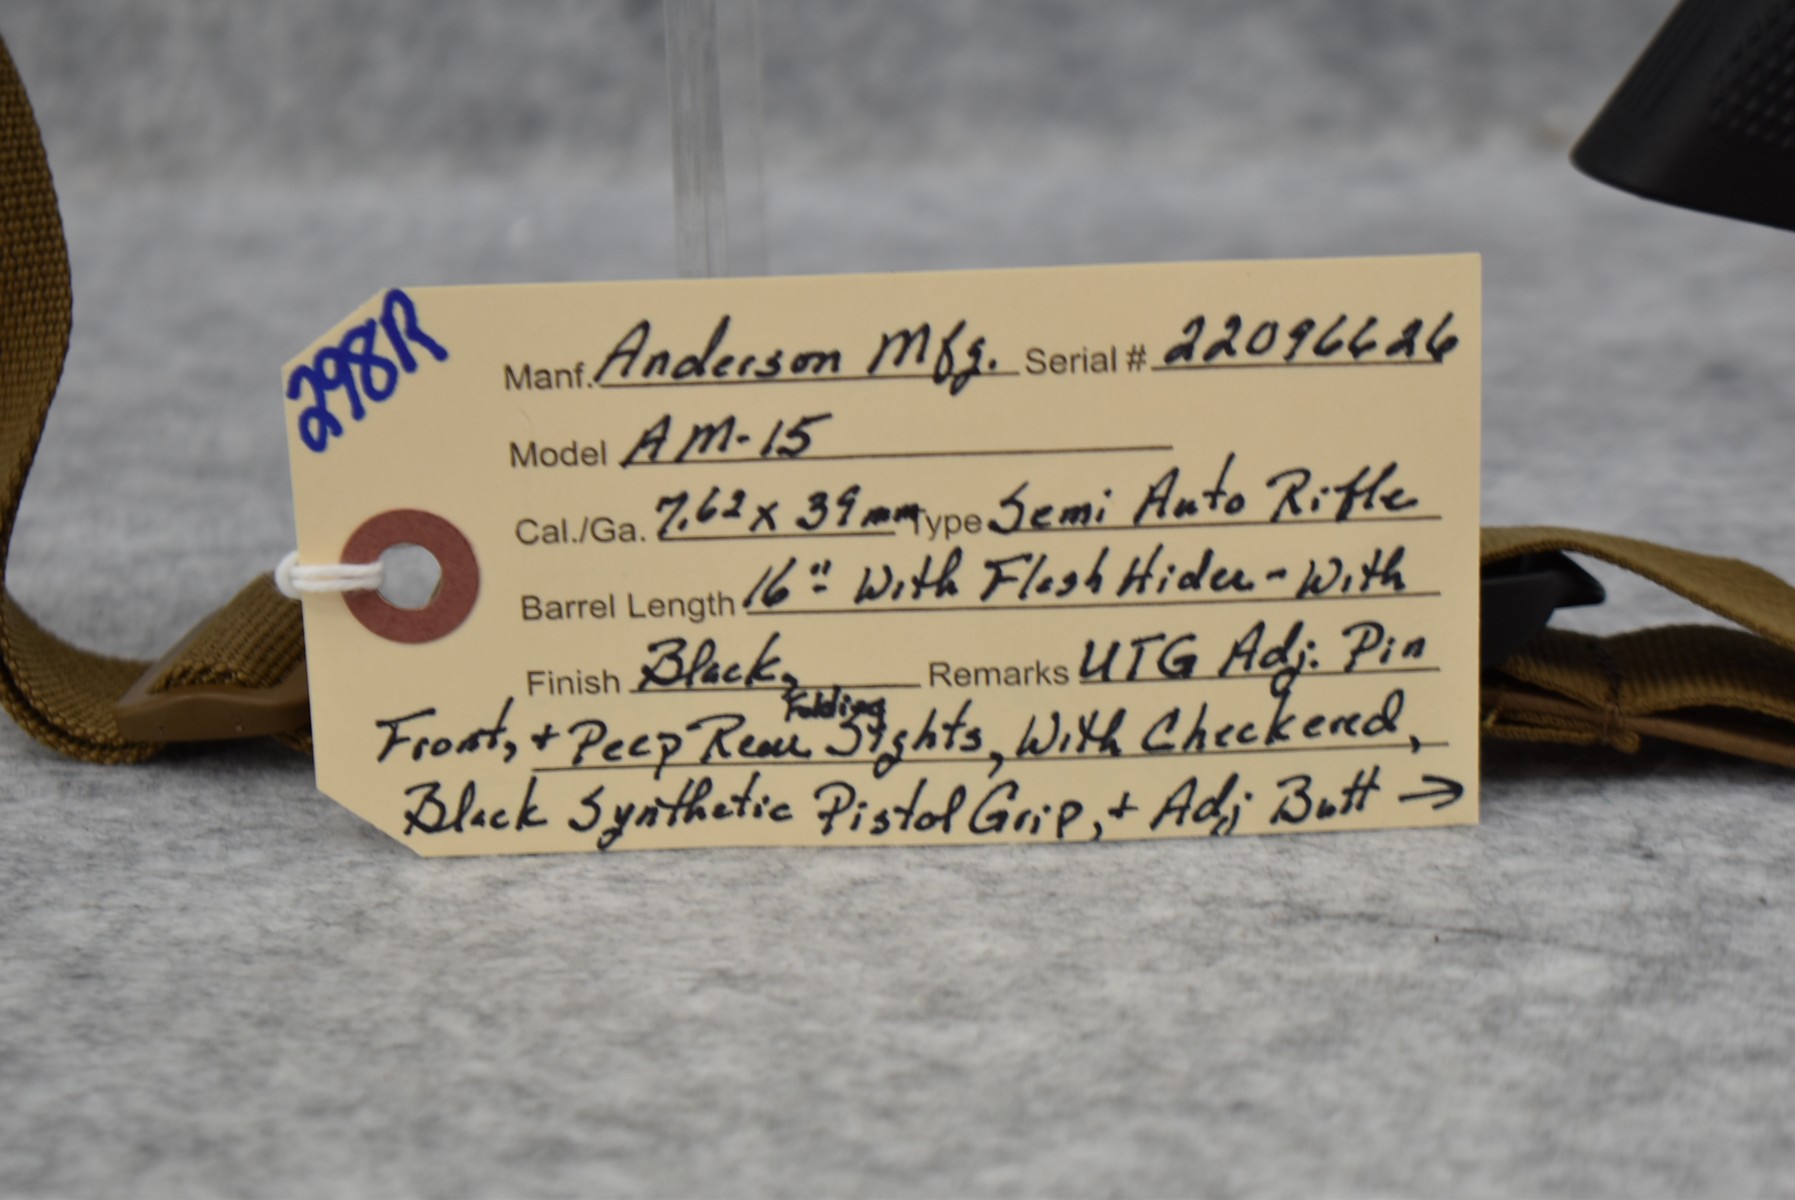 298R
Manf. Anderson Mfg. Serial # 22096626
Model AM-15
Cal./Ga. 7.62 x 39mm Type Semi Auto Rifle
Barrel Length 16" With Flash Hider - With
Finish Black, Remarks UTG Adj. Pin
Front, + Peep Rear Folding Sights, With Checkered,
Black Synthetic Pistol Grip, + Adj Butt →